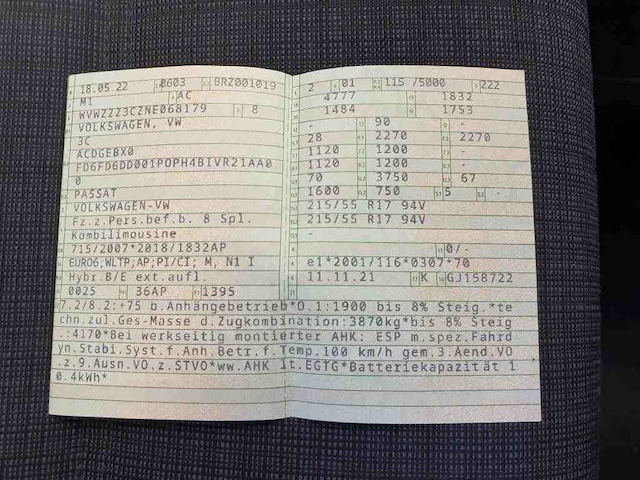 18.05.22 0603 BRZ001019
M1 AC
WVWZZZ3CZNE068179 8
VOLKSWAGEN, VW
3C
ACDGEBX0
FD6FD6DD001POPH4BIVR21AA0
0
PASSAT
VOLKSWAGEN-VW
Fz.z.Pers.bef.b. 8 Spl.
Kombilimousine
715/2007*2018/1832AP
EURO6;WLTP;AP;PI/CI; M, N1 I
Hybr.B/E ext.aufl.
0025 36AP 1395
2 01 115 /5000 222
4777 1832
1484 1753
- 90 -
28 2270 2270
1120 1200 -
1120 1200 -
70 3750 67
1600 750 5 -
215/55 R17 94V
215/55 R17 94V
-
0/-
e1*2001/116*0307*70
11.11.21 K GJ158722
7.2/8.2:+75 b.Anhängebetrieb*O.1:1900 bis 8% Steig.*te
chn.zul.Ges-Masse d.Zugkombination:3870kg*bis 8% Steig
.:4170*Bei werkseitig montierter AHK: ESP m.spez.Fahrd
yn.Stabi.Syst.f.Anh.Betr.f.Temp.100 km/h gem.3.Aend.VO
.z.9.Ausn.VO.z.STVO*ww.AHK lt.EGTG*Batteriekapazität 1
0.4kWh*